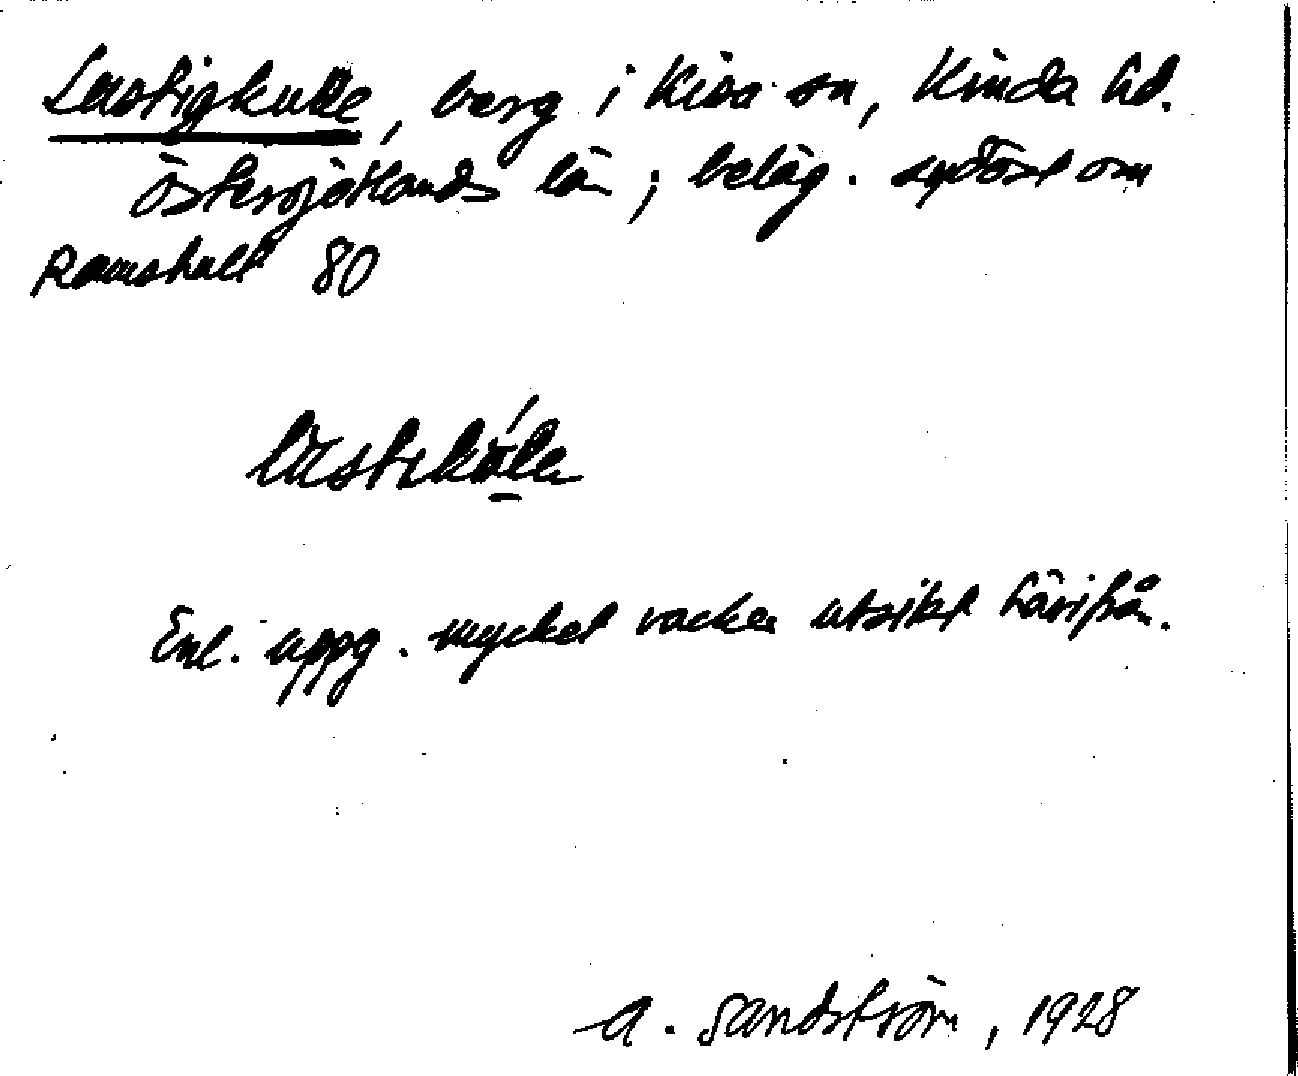 Lustigkulle, berg i Kisa sn, Kinda hd.
Östergötlands län; beläg. sydöst om
Ramshult 80
Enl. uppg. mycket vacker utsikt härifrån.
A. Sandström, 1928